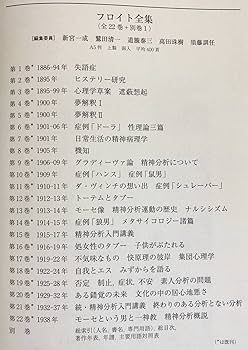 フロイト全集
(全22巻+別巻1)
[編集委員] 新宮一成 鷲田清一 道籏泰三 高田珠樹 須藤訓任
A5判 上製 函入 平均400頁
第1巻* 1886-94年 失語症
第2巻* 1895年 ヒステリー研究
第3巻* 1895-99年 心理学草案 遮蔽想起
第4巻* 1900年 夢解釈Ⅰ
第5巻* 1900年 夢解釈Ⅱ
第6巻* 1901-06年 症例「ドーラ」 性理論三篇
第7巻* 1901年 日常生活の精神病理学
第8巻* 1905年 機知
第9巻* 1906-09年 グラディーヴァ論 精神分析について
第10巻* 1909年 症例「ハンス」 症例「鼠男」
第11巻* 1910-11年 ダ・ヴィンチの想い出 症例「シュレーバー」
第12巻* 1912-13年 トーテムとタブー
第13巻* 1913-14年 モーセ像 精神分析運動の歴史 ナルシシズム
第14巻* 1914-15年 症例「狼男」 メタサイコロジー諸篇
第15巻* 1915-17年 精神分析入門講義
第16巻* 1916-19年 処女性のタブー 子供がぶたれる
第17巻* 1919-22年 不気味なもの 快原理の彼岸 集団心理学
第18巻* 1922-24年 自我とエス みずからを語る
第19巻* 1925-28年 否定 制止,症状,不安 素人分析の問題
第20巻* 1929-32年 ある錯覚の未来 文化の中の居心地悪さ
第21巻* 1932-37年 続・精神分析入門講義 終わりのある分析とない分析
第22巻* 1938年 モーセという男と一神教 精神分析概説
別巻 総索引(人名,書名,専門用語),総目次,
著作年表,年譜,主要用語対照表
(*は既刊)